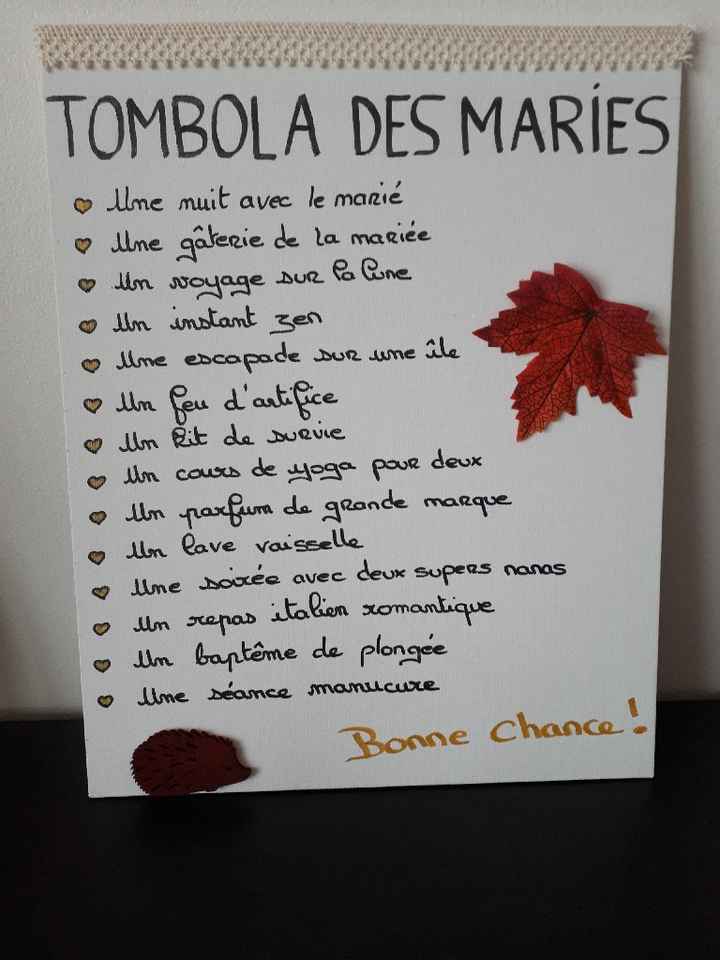 TOMBOLA DES MARIÉS
Une nuit avec le marié
Une gâterie de la mariée
Un voyage sur la lune
Un instant zen
Une escapade sur une île
Un feu d'artifice
Un kit de survie
Un cours de yoga pour deux
Un parfum de grande marque
Un lave vaisselle
Une soirée avec deux supers nanas
Un repas italien romantique
Un baptême de plongée
Une séance manucure
Bonne chance !